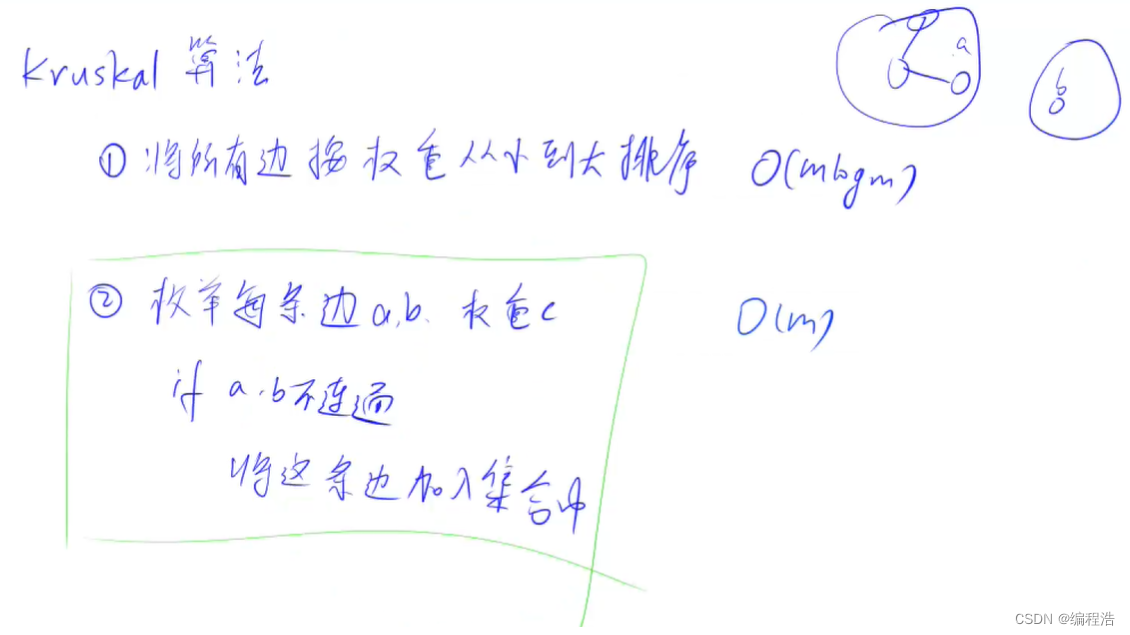 Kruskal 算法
a
b
① 将所有边按权重从小到大排序 O(mlogm)
② 枚举每条边a,b. 权重c O(m)
if a,b不连通
将这条边加入集合中
CSDN @编程浩